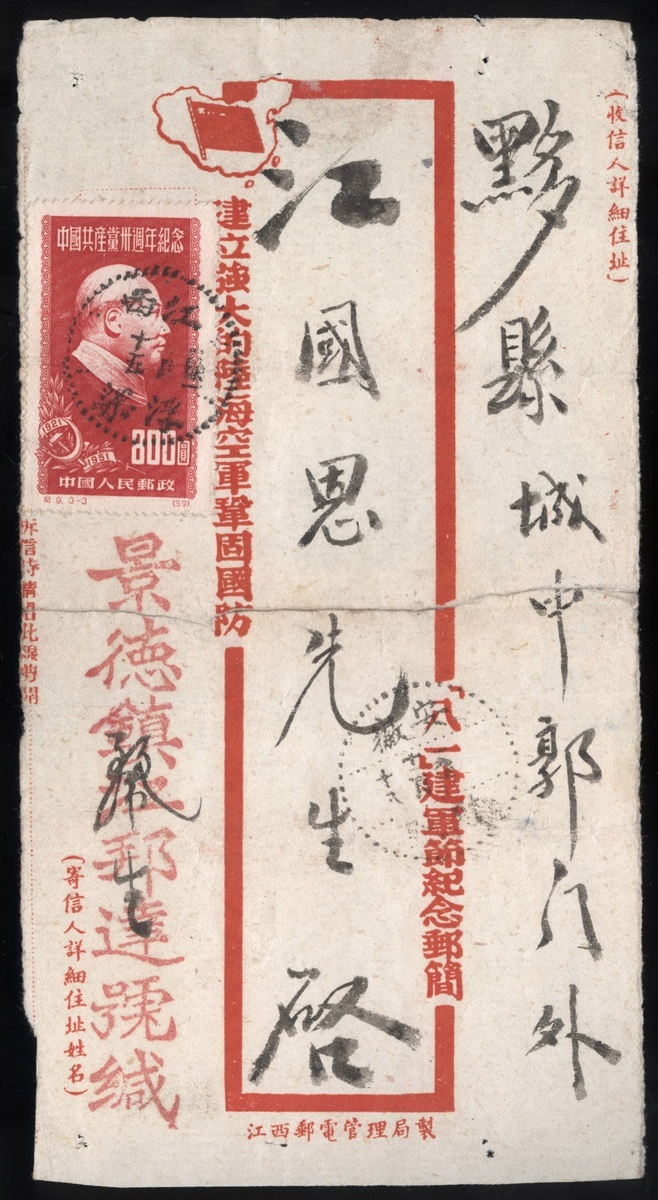 (收信人詳細住址)
黟縣城中郭门外
江國恩先生啓
「八一」建軍節紀念郵簡
建立強大的陸海空軍鞏固國防
中國共產黨卅週年紀念
1921
1951
800圓
中國人民郵政
紀9.3-3
(59)
江西
十五
浮梁
安徽
景德鎮
郵達號緘
(寄信人詳細住址姓名)
拆信時請沿此線剪開
江西郵電管理局製